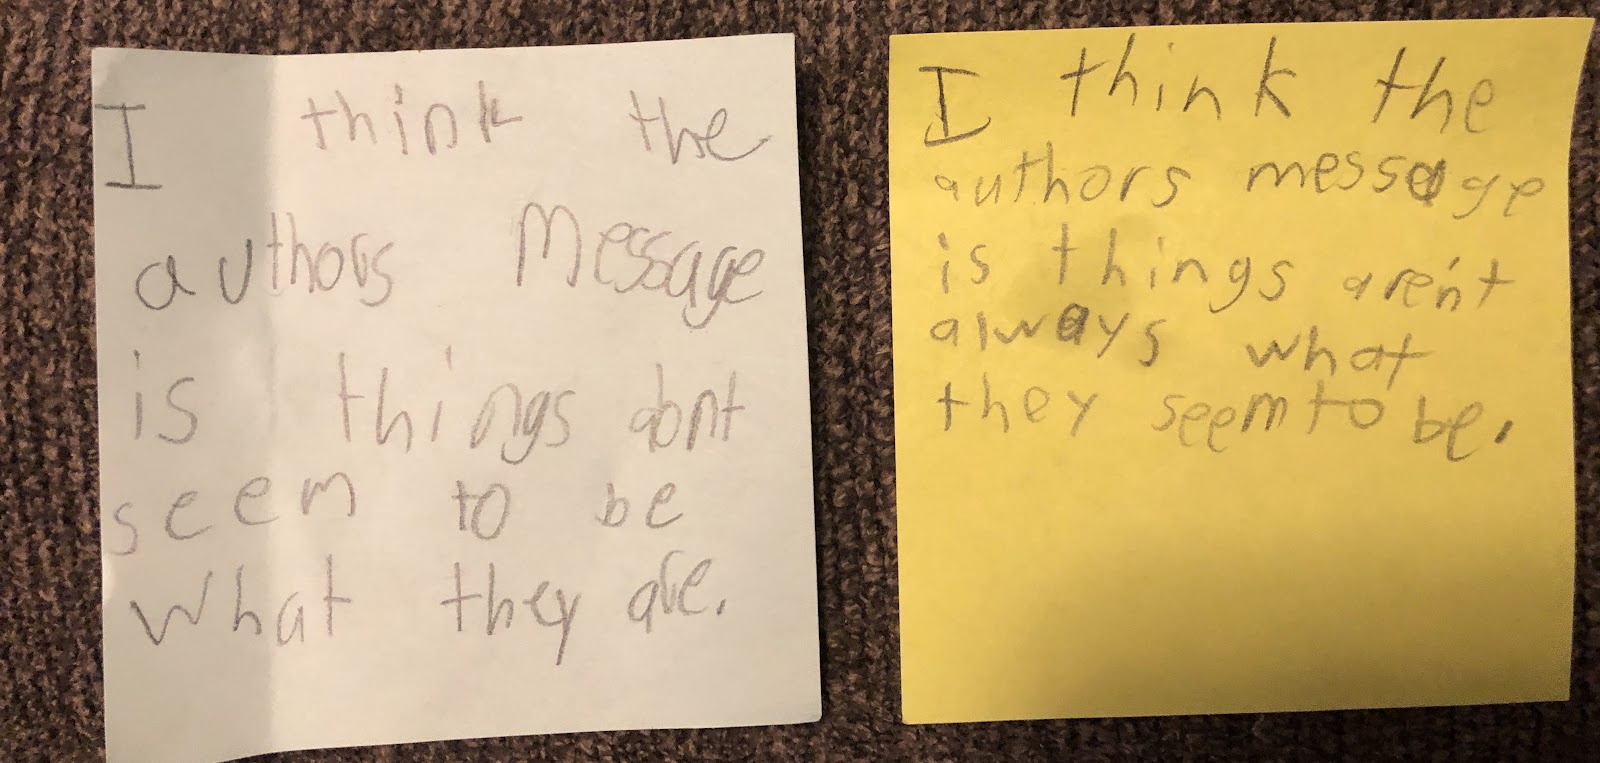 I think the
authors Message
is things dont
seem to be
what they are.
I think the
authors message
is things aren't
always what
they seem to be.